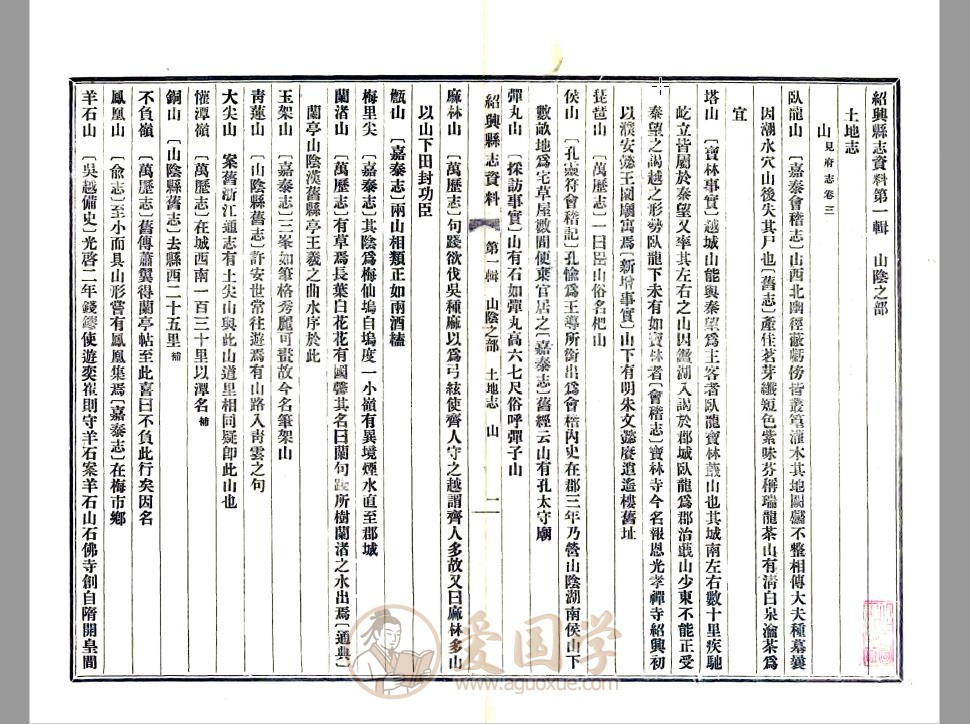 紹興縣志資料第一輯　山陰之部
土地志
山 見府志卷三
臥龍山　〔嘉泰會稽志〕山西北幽徑蔽虧傍皆叢篁灌木其地闢齾不整相傳大夫種墓曩
因潮水穴山後失其尸也〔舊志〕產佳茗芽纖短色紫味芬稱瑞龍茶山有清白泉瀹茶爲
宜
塔山　〔寶林事實〕越城山能與秦望爲主客者臥龍寶林蕺山也其城南左右數十里疾馳
屹立皆屬於秦望又率其左右之山因鑑湖入謁於郡城臥龍爲郡治蕺山少東不能正受
秦望之謁越之形勢臥龍下未有如寶林者〔會稽志〕寶林寺今名報恩光孝禪寺紹興初
以濮安懿王園廟寓焉〔新增事實〕山下有明朱文懿賡逍遙樓舊址
琵琶山　〔萬歷志〕一曰山俗名杷山
侯山　〔孔靈符會稽記〕孔愉爲王導所銜出爲會稽內史在郡三年乃營山陰湖南侯山下
數畝地爲宅草屋數間便棄官居之〔嘉泰志〕舊經云山有孔太守廟
彈丸山　〔採訪事實〕山有石如彈丸高六七尺俗呼彈子山
紹興縣志資料　第一輯　山陰之部　土地志　山　一
麻林山　〔萬歷志〕句踐欲伐吳種麻以爲弓絃使齊人守之越謂齊人多故又曰麻林多山
以山下田封功臣
甑山　〔嘉泰志〕兩山相類正如兩酒榼
梅里尖　〔嘉泰志〕其陰爲梅仙塢自塢度一小嶺有異境煙水直至郡城
蘭渚山　〔萬歷志〕有草焉長葉白花花有國馨其名曰蘭句踐所樹蘭渚之水出焉〔通典〕
蘭亭山陰漢舊縣亭王羲之曲水序於此
玉架山　〔嘉泰志〕三峯如筆格秀麗可畫故今名筆架山
靑蓮山　〔山陰縣舊志〕許安世常往遊焉有山路入靑雲之句
大尖山　案舊浙江通志有土尖山與此山道里相同疑卽此山也
催潭嶺　〔萬歷志〕在城西南一百三十里以潭名 補
銅山　〔山陰縣舊志〕去縣西二十五里 補
不負嶺　〔萬歷志〕舊傳蕭翼得蘭亭帖至此喜曰不負此行矣因名
鳳凰山　〔兪志〕至小而具山形嘗有鳳凰集焉〔嘉泰志〕在梅市鄕
羊石山　〔吳越備史〕光啓二年錢鏐使遊奕崔則守羊石案羊石山石佛寺創自隋開皇間
爱国学
www.aguoxue.com